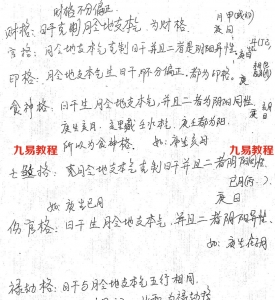 财格不分偏正.
财格：日干克制月令地支本气，为财格.
月甲(或仰)
庚日
官格：月令地支本气克制日干并且二者是阴阳异性.
庚日
印格：月令地支本气生日干不分偏正，都为印格.
庚
食神格：日干生月令地支本气，并且二者为阴阳同性.
庚生亥月：亥里藏壬水本气，庚壬都为阳.
所以为食神格.
如：庚生亥月
九易教程
九易教程
七煞格：月令地支本气克制日干并且二者阴阳同性.
如：庚生巳月
庚日
伤官格：日干生月令地支本气，并且二者阴阳异性.
如：庚生在子月
禄劫格：日干与月令地支本气五行相同.
为禄劫格